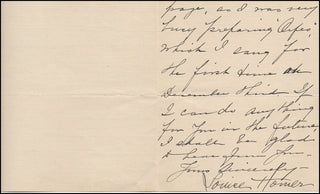 page, as I was very
busy preparing "Orfeo",
which I sang for
the first time on
December third. If
I can do anything
for you in the future,
I shall be glad
to hear from you.
Yours Sincerely
Louise Homer